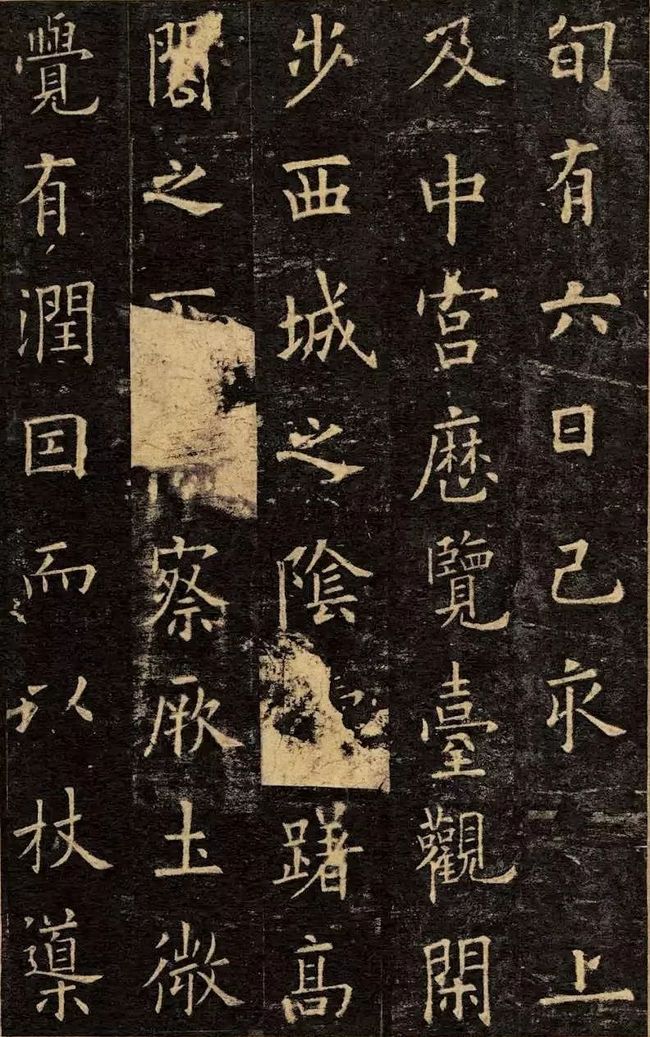 旬有六日己亥上
及中宮歷覽臺觀閑
步西城之陰躇高
閣之察厥土微
覺有潤因而以杖導